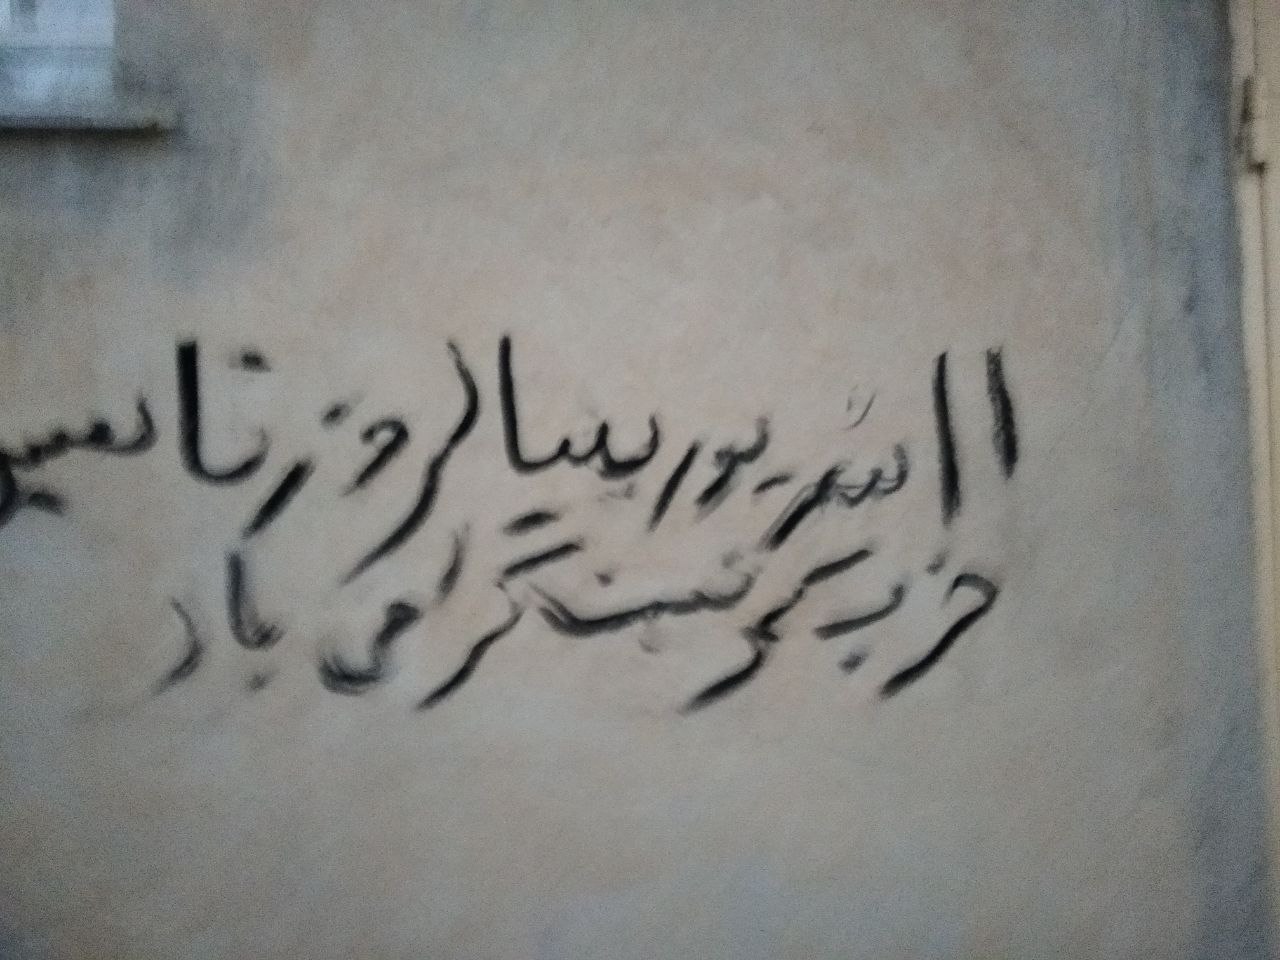 ۱۱ شهریور سالروز تاسیس
حزب کمونیست گرامی باد